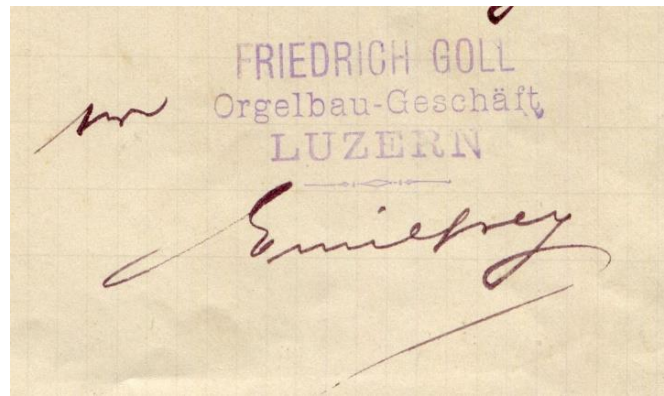 FRIEDRICH GOLL
Orgelbau-Geschäft
LUZERN
Emil Frey